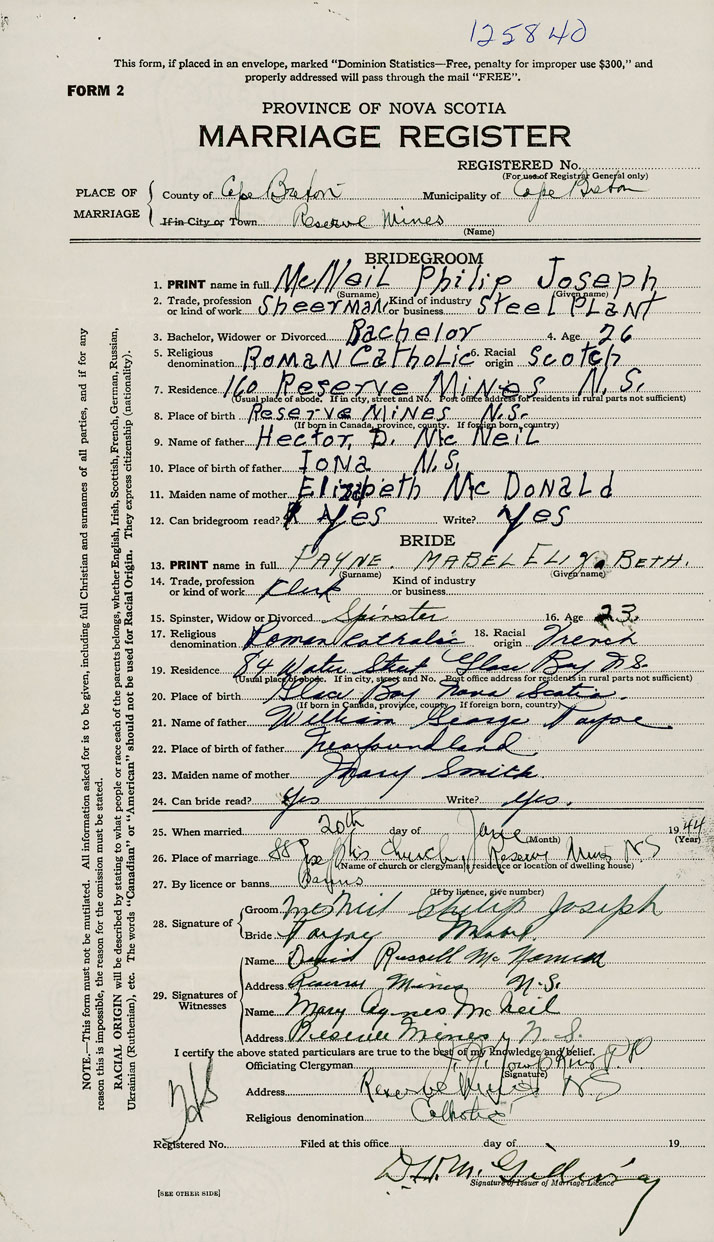 125840
This form, if placed in an envelope, marked "Dominion Statistics—Free, penalty for improper use $300," and
properly addressed will pass through the mail "FREE".
FORM 2
PROVINCE OF NOVA SCOTIA
MARRIAGE REGISTER
REGISTERED No.
(For use of Registrar General only)
PLACE OF MARRIAGE
County of Cape Breton Municipality of Cape Breton
If in City or Town Reserve Mines
(Name)
BRIDEGROOM
1. PRINT name in full McNeil Philip Joseph
(Surname) (Given name)
2. Trade, profession or kind of work Sheerman Kind of industry or business Steel PLANT
3. Bachelor, Widower or Divorced Bachelor 4. Age 26
5. Religious denomination Roman Catholic 6. Racial origin Scotch
7. Residence 160 Reserve Mines N.S.
(Usual place of abode. If in city, street and No. Post office address for residents in rural parts not sufficient)
8. Place of birth Reserve Mines N.S.
(If born in Canada, province, county. If foreign born, country)
9. Name of father Hector D. McNeil
10. Place of birth of father Iona N.S.
11. Maiden name of mother Elizabeth McDonald
12. Can bridegroom read? Yes Write? Yes
BRIDE
13. PRINT name in full PAYNE. MABEL ELIZABETH.
(Surname) (Given name)
14. Trade, profession or kind of work Clerk Kind of industry or business
15. Spinster, Widow or Divorced Spinster 16. Age 23
17. Religious denomination Roman Catholic 18. Racial origin French
19. Residence 84 Water Street Glace Bay N.S.
(Usual place of abode. If in city, street and No. Post office address for residents in rural parts not sufficient)
20. Place of birth Glace Bay Nova Scotia.
(If born in Canada, province, county If foreign born, country)
21. Name of father William George Payne
22. Place of birth of father Newfoundland
23. Maiden name of mother Mary Smith.
24. Can bride read? Yes Write? Yes.
25. When married 20th day of June 1944
(Month) (Year)
26. Place of marriage Church, Reserve Mines NS
(Name of church or clergyman's residence or location of dwelling house)
27. By licence or banns Banns
(If by licence, give number)
28. Signature of
Groom McNeil Philip Joseph
Bride Payne Mabel
29. Signatures of Witnesses
Name David Russell
Address Reserve Mines N.S.
Name Mary Agnes McNeil
Address Reserve Mines, N.S.
I certify the above stated particulars are true to the best of my knowledge and belief.
Officiating Clergyman
(Signature)
Address Reserve Mines NS
Religious denomination Catholic
Registered No. Filed at this office day of 19
Signature of Issuer of Marriage Licence
[SEE OTHER SIDE]
NOTE.—This form must not be mutilated. All information asked for is to be given, including full Christian and surnames of all parties, and if for any
reason this is impossible, the reason for the omission must be stated.
RACIAL ORIGIN will be described by stating to what people or race each of the parents belongs, whether English, Irish, Scottish, French, German, Russian,
Ukrainian (Ruthenian), etc. The words "Canadian" or "American" should not be used for Racial Origin. They express citizenship (nationality).